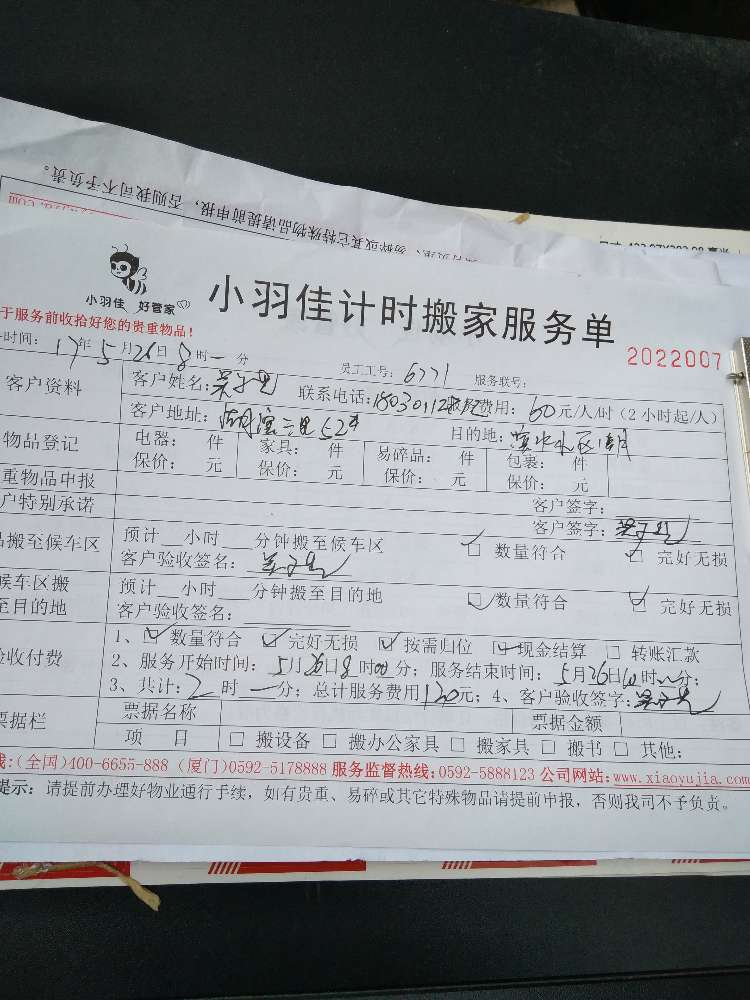 否则我司不予负责。
易碎或其它特殊物品请提前申报，
小羽佳 好管家
小羽佳计时搬家服务单
2022007
于服务前收拾好您的贵重物品!
时间: 17年5月26日8时一分 员工工号: 6771 服务联号:
客户资料 客户姓名: 联系电话: 费用: 60元/人/时 (2小时起/人)
客户地址: 湖滨二里52# 目的地:
物品登记 电器: 件 家具: 件 易碎品: 件 包裹: 件
保价: 元 保价: 元 保价: 元 保价: 元
重物品申报 客户签字:
户特别承诺 客户签字:
品搬至候车区 预计__小时___分钟搬至候车区 ☑ 数量符合 ☑ 完好无损
客户验收签名:
候车区搬至目的地 预计__小时___分钟搬至目的地 ☑ 数量符合 ☑ 完好无损
客户验收签名:
验收付费 1、☑ 数量符合 ☑ 完好无损 ☑ 按需归位 ☑ 现金结算 □ 转账汇款
2、服务开始时间: 5月26日8时00分; 服务结束时间: 5月26日10时分;
3、共计: 2时一分; 总计服务费用120元; 4、客户验收签字:
票据栏 票据名称 票据金额
项 目 □ 搬设备 □ 搬办公家具 □ 搬家具 □ 搬书 □ 其他:
线:(全国)400-6655-888 (厦门)0592-5178888 服务监督热线:0592-5888123 公司网站:www.xiaoyujia.com
提示: 请提前办理好物业通行手续, 如有贵重、易碎或其它特殊物品请提前申报, 否则我司不予负责。